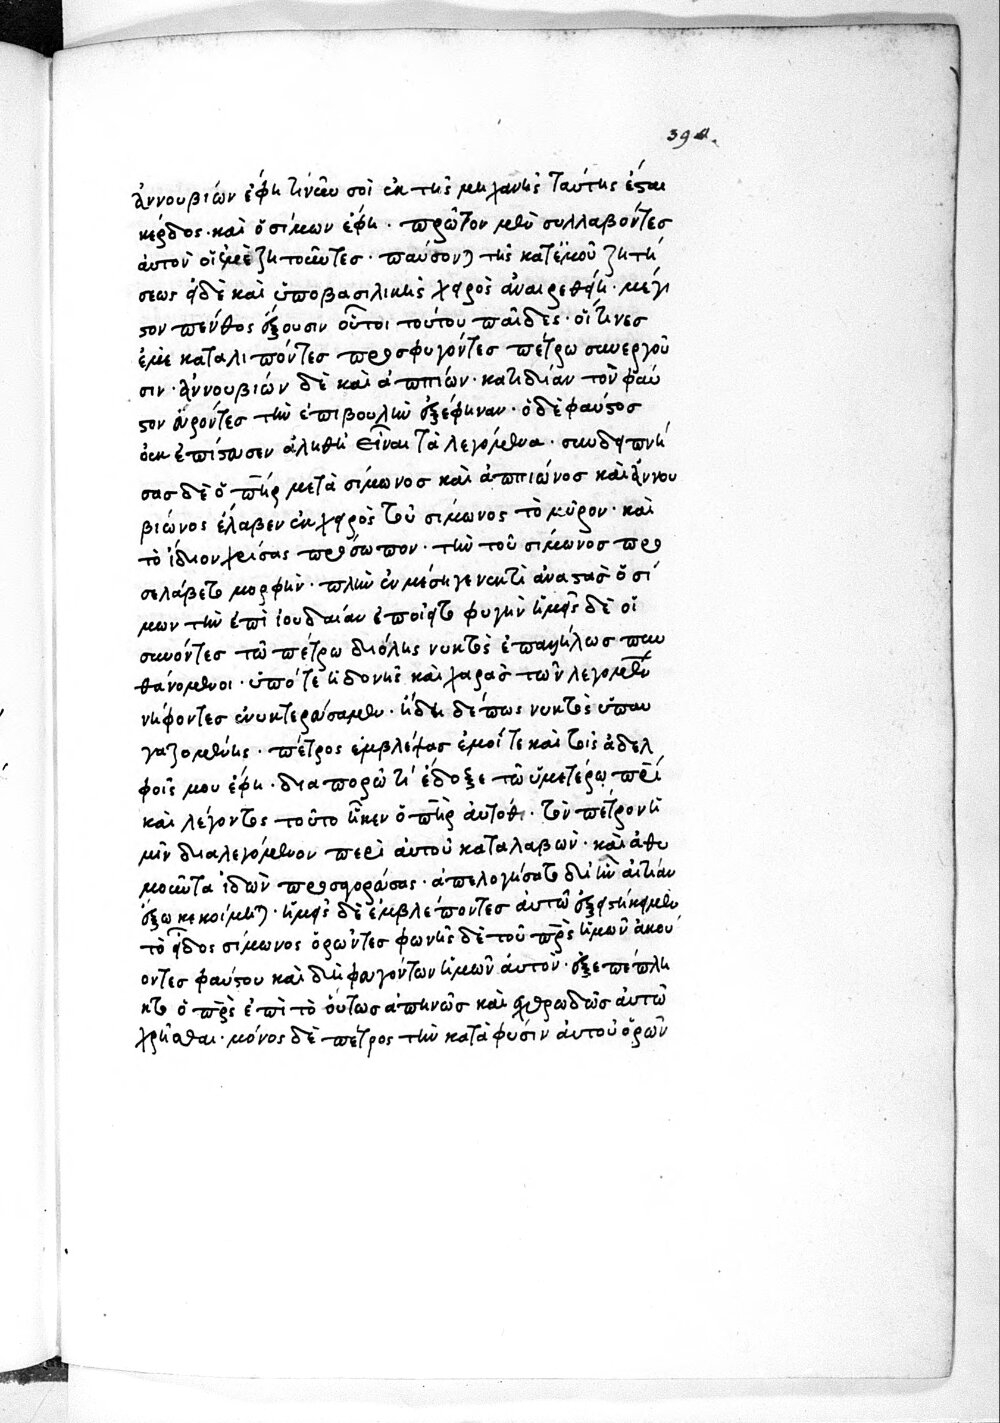 394.
ἀννουβιών ἔφη τίνῶν σοὶ ἐκ τῆς μηχανῆς ταύτης ἔσται
κέρδος· καὶ ὁ σίμων ἔφη· πρῶτον μὲν συλλαβόντες
ἀυτὸν οἵ ἐμὲ ζητοῦντες· παύσονται τῆς κατ' ἐμοῦ ζητή
σεως εἰ δὲ καὶ ὑπὸ βασιλικῆς χειρὸς ἀναιρεθείη· μέγι
στον πένθος ἕξουσιν οὗτοι τούτου παῖδες· οἵ τινες
ἐμὲ καταλιπόντες προσφυγόντες πέτρω συνεργοῦ
σιν· ἀννουβιών δὲ καὶ ἀππιών· κατιδίαν τὸν φαύ
στον εὑρόντες τὴν ἐπιβουλὴν ἐξέφηναν· ὁ δὲ φαῦστος
οὐκ ἐπίστωσεν ἀληθῆ εἶναι τὰ λεγόμενα· συνδειπνή
σας δὲ ὁ πῆρ μετὰ σίμωνος καὶ ἀππιώνος καὶ ἀννου
βιώνος ἔλαβεν ἐκ χειρὸς τοῦ σίμωνος τὸ μῦρον· καὶ
τὸ ἴδιον χρίσας πρόσωπον· τὴν τοῦ σίμωνος προ
σελάβετο μορφὴν· πλὴν ἐν μέσῃ γε νυκτὶ ἀναστὰς ὁ σί
μων τὴν ἐπὶ ἰουδαίαν ἐποιεῖτο φυγὴν ἡμεῖς δὲ οἱ
συνόντες τῶ πέτρω διόλης νυκτὸς ἐπαλλήλως πυν
θανόμενοι· ὑπό τε ἡδονῆς καὶ χαρᾶς τῶν λεγομένων
νήφοντες ἐνυκτερεύσαμεν· ἤδη δέ πως νυκτὸς ὑπαυ
γαζομένης· πέτρος ἐμβλέψας ἐμοί τε καὶ τοῖς ἀδελ
φοῖς μου ἔφη· διαπορῶ τί ἔδοξε τῶ ὑμετέρω πρί
καὶ λέγοντος τοῦτο ἧκεν ὁ πῆρ αὐτόθι· τὸν πέτρον ἡ
μῖν διαλεγόμενον περὶ αὐτοῦ καταλαβών· καὶ ἀθυ
μοῦντα ἰδὼν προσαγορεύσας· ἀπελογήσατο δι' ἣν αἰτίαν
ἔξω κεκοίμηται· ἡμεῖς δὲ ἐμβλέποντες αὐτῶ ἐξεστήκειμεν
τὸ εἶδος σίμωνος ὁρῶντες φωνῆς δὲ τοῦ πρς ἡμῶν ἀκού
οντες φαύστου καὶ δὴ φυγόντων ἡμῶν ἀυτὸν· ἐξεπέπλη
κτο ὁ πὴρ ἐπὶ τὸ οὕτως ἀπηνῶς καὶ ἐχθρωδῶς ἀυτῶ
χρῆσθαι· μόνος δὲ πέτρος τὴν κατὰ φύσιν ἀυτοῦ ὁρῶν